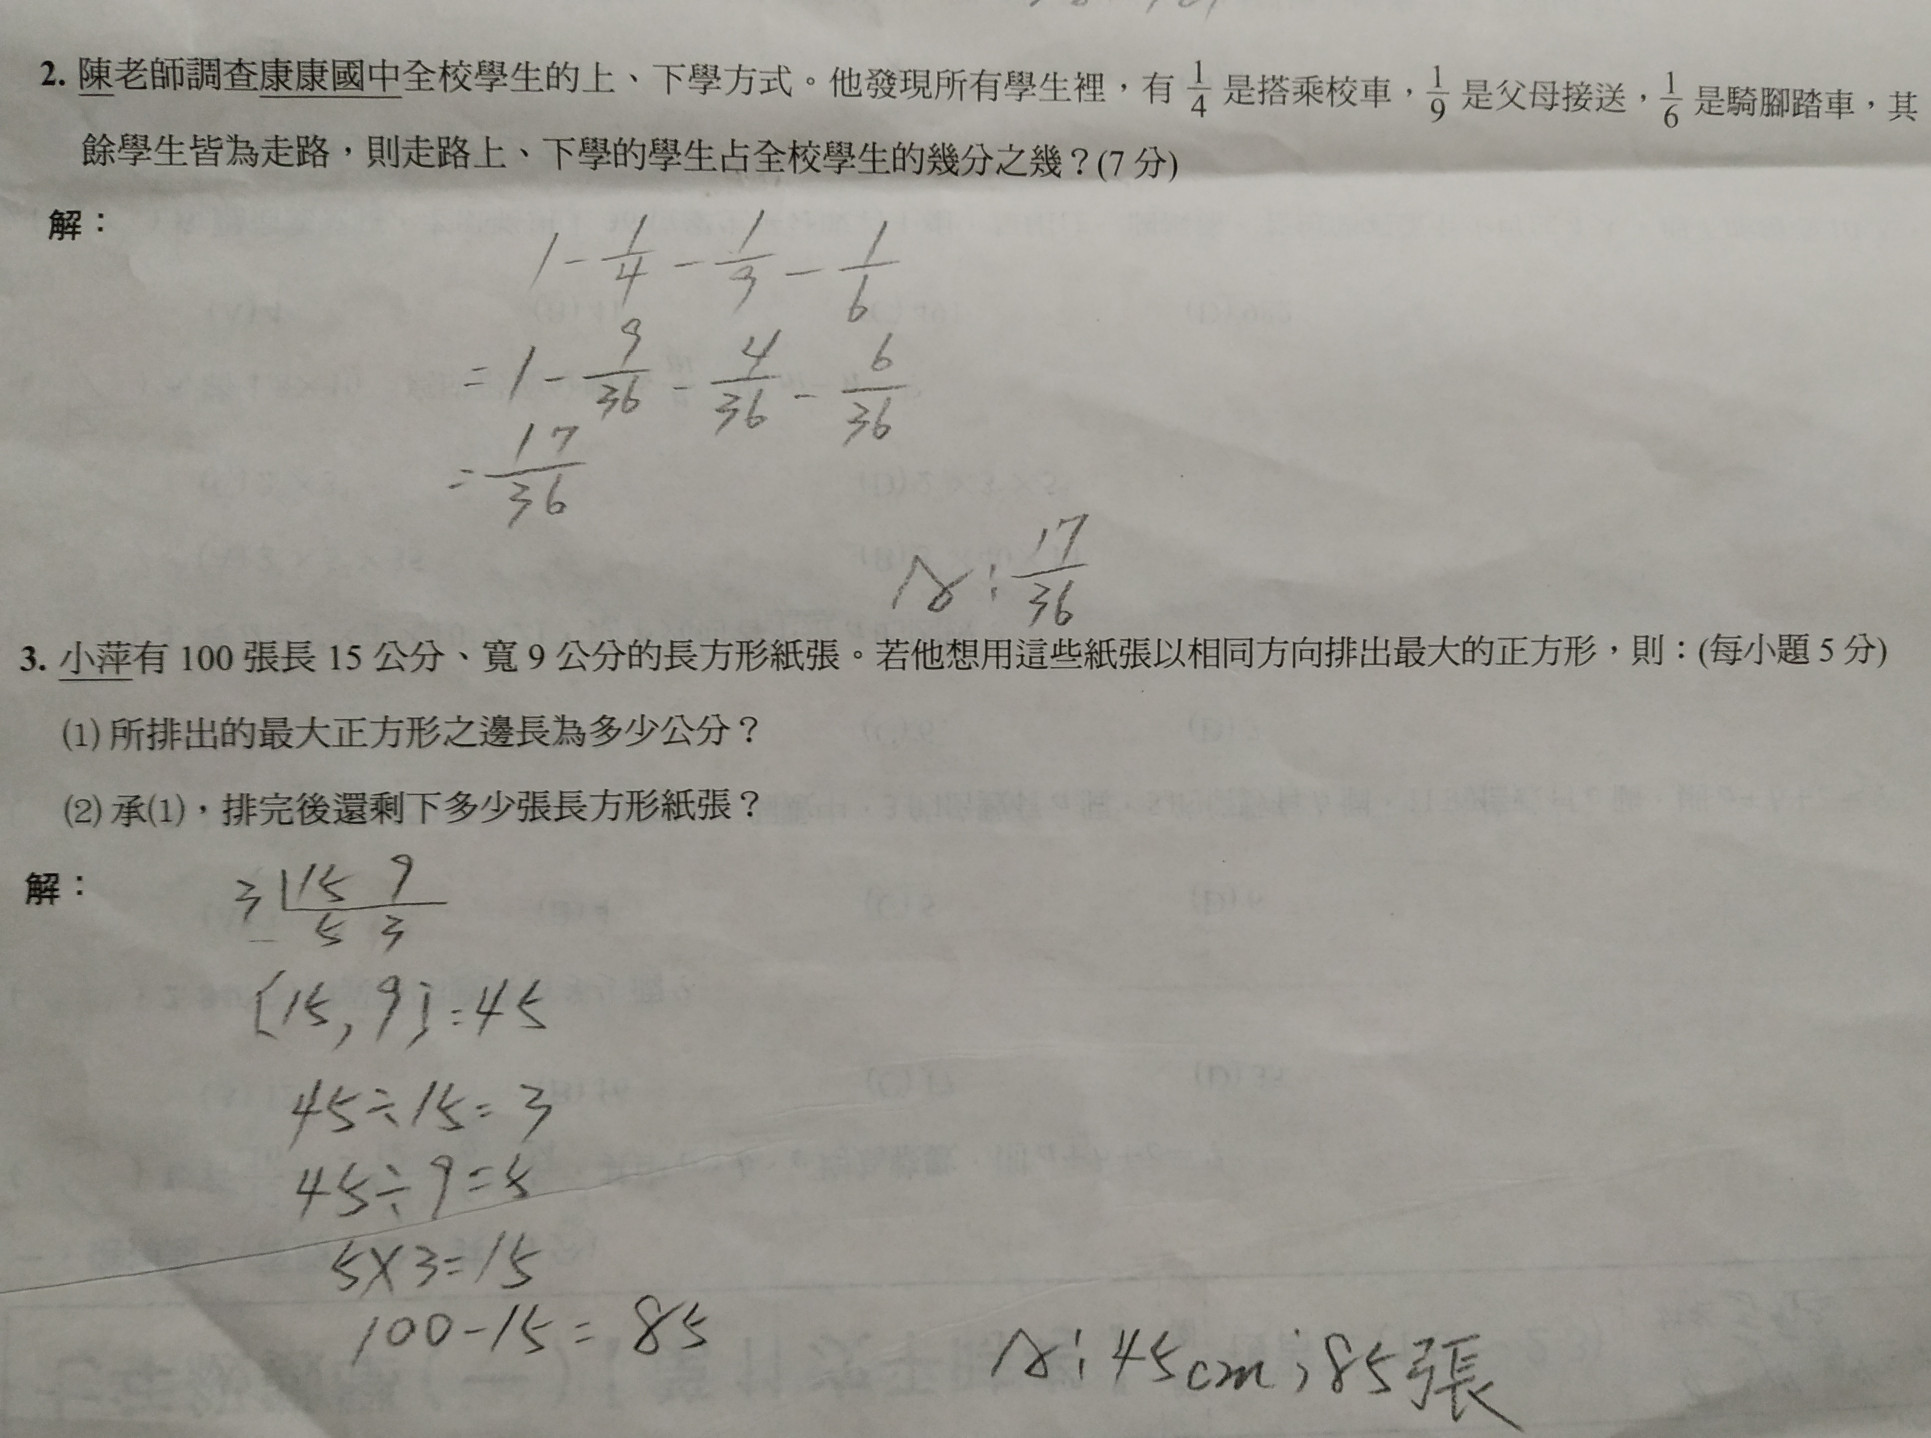 2. 陳老師調查康康國中全校學生的上、下學方式。他發現所有學生裡,有 1/4 是搭乘校車,1/9 是父母接送,1/6 是騎腳踏車,其
餘學生皆為走路,則走路上、下學的學生占全校學生的幾分之幾?(7 分)
解:
1 - 1/4 - 1/9 - 1/6
= 1 - 9/36 - 4/36 - 6/36
= 17/36
A: 17/36
3. 小萍有 100 張長 15 公分、寬 9 公分的長方形紙張。若他想用這些紙張以相同方向排出最大的正方形,則:(每小題 5 分)
(1) 所排出的最大正方形之邊長為多少公分?
(2) 承(1),排完後還剩下多少張長方形紙張?
解:
3 | 15 9
5 3
[15, 9] = 45
45 ÷ 15 = 3
45 ÷ 9 = 5
5 × 3 = 15
100 - 15 = 85
A: 45cm; 85張